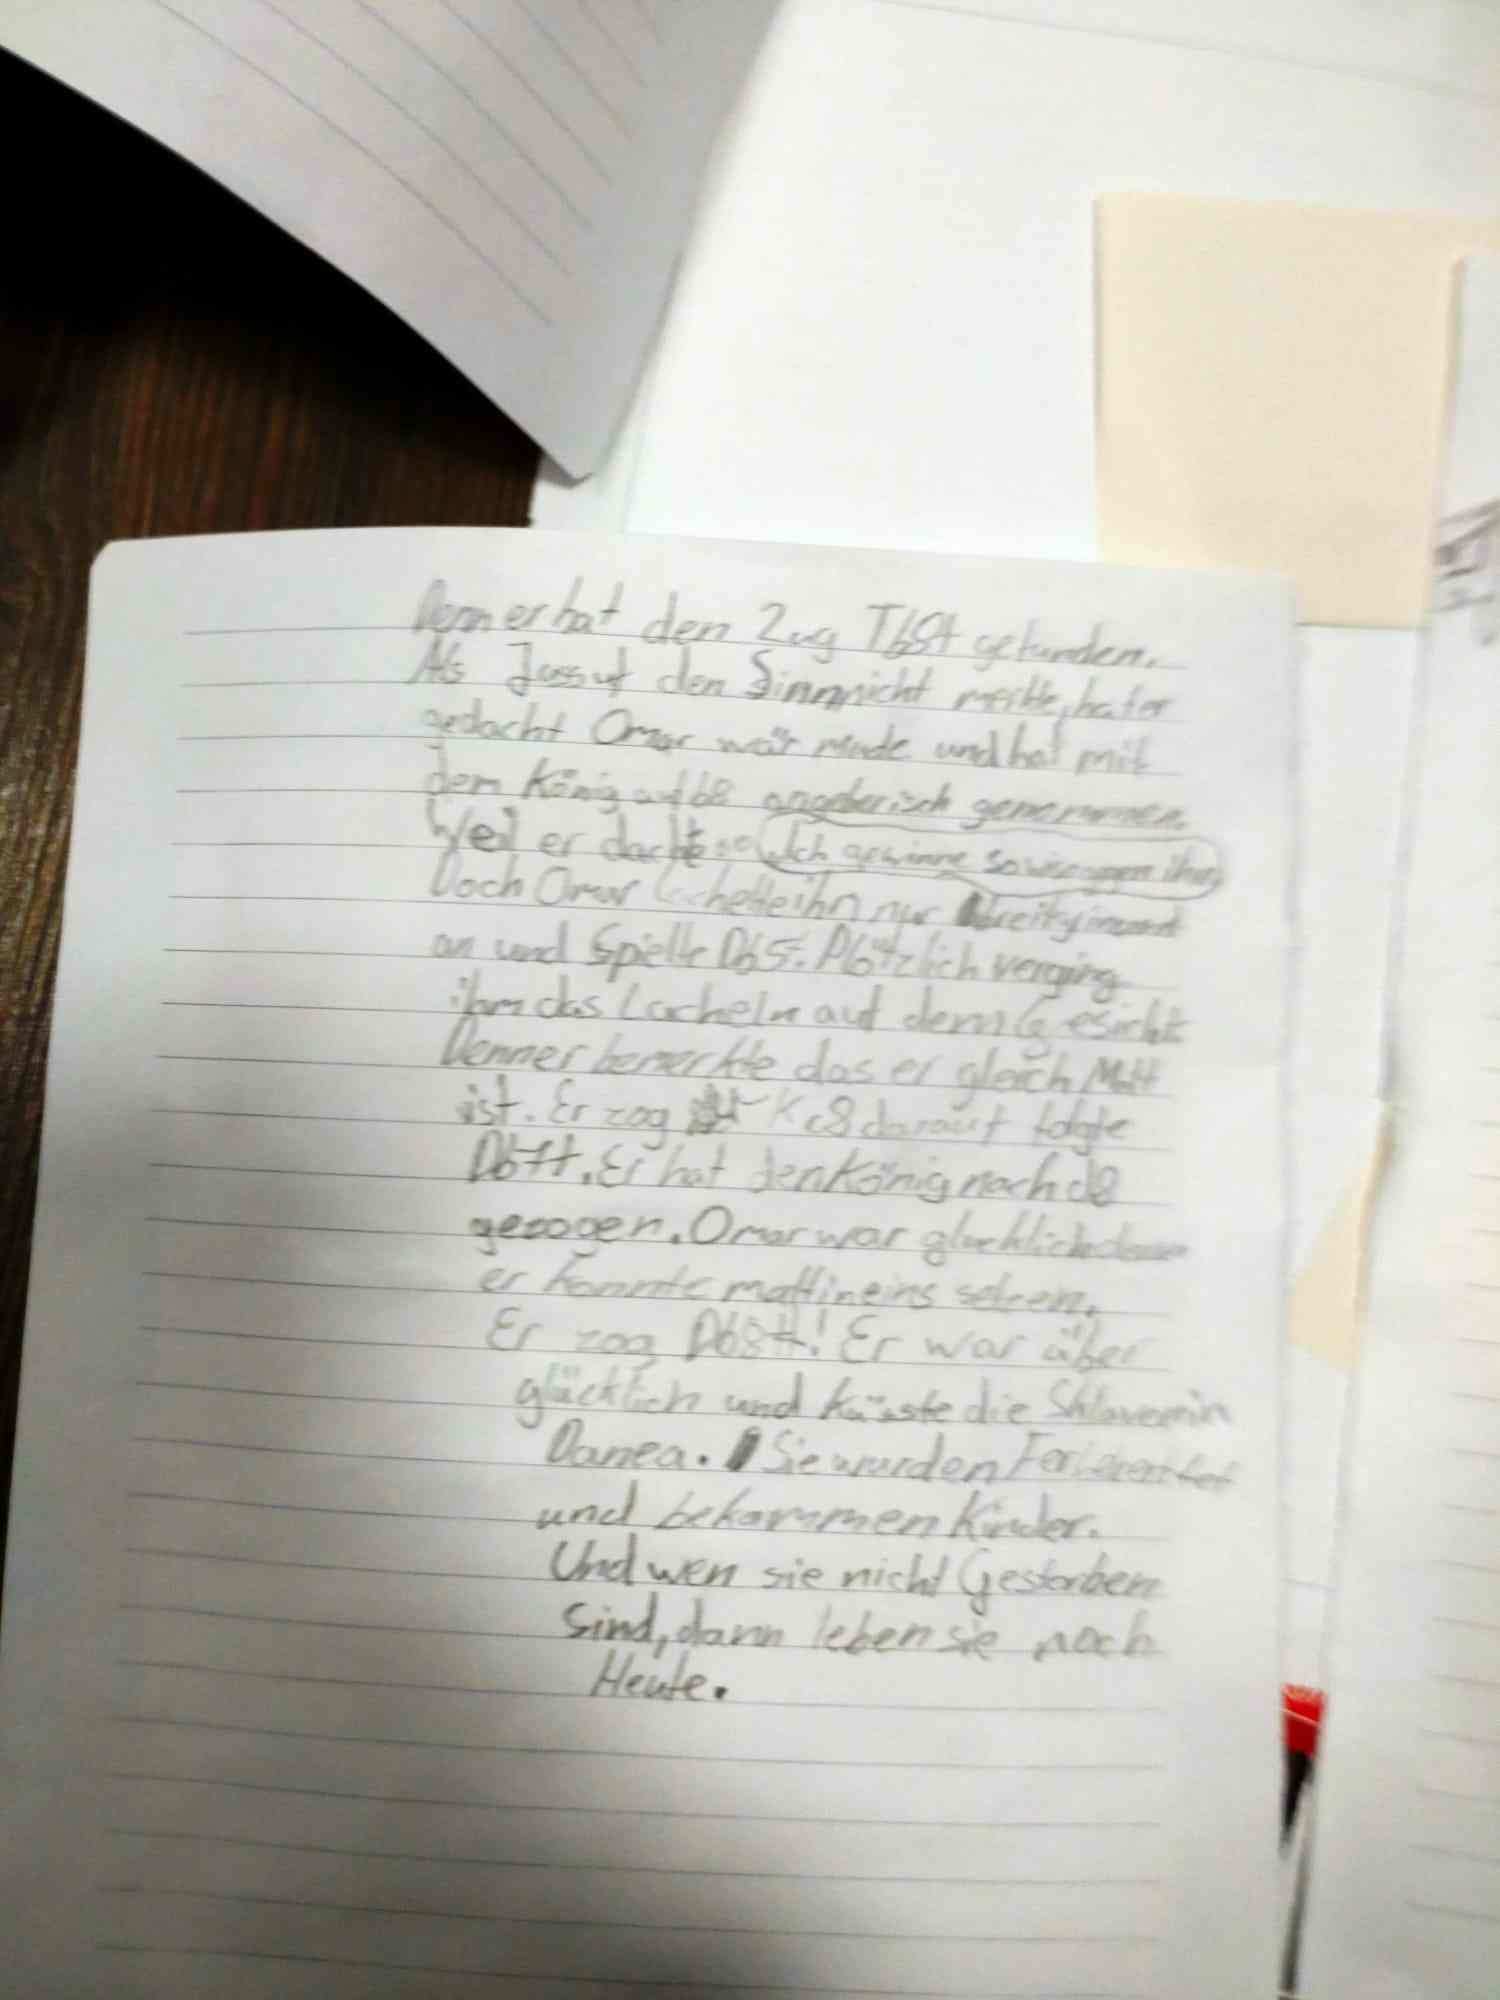 Denn er hat den Zug Tb8+ gefunden.
Als Jussuf den Sinn nicht merkte, hat er
gedacht Omar wär müde und hat mit
dem König auf b8 angeberisch genommen.
Weil er dachte Ich gewinne sowieso gegen ihn
Doch Omar lächelte ihn nur
an und Spielte Db5+. Plötzlich verging
ihm das Lächeln auf dem Gesicht
Denn er bemerkte das er gleich Matt
ist. Er zog Kc8 darauf folgte
Db7+. Er hat den König nach d8
gezogen. Omar war glücklich denn
er konnte matt in eins setzen.
Er zog Db8#! Er war über
glücklich und küsste die Sklavenin
Danea. Sie wurden
und bekammen Kinder.
Und wen sie nicht Gestorben
Sind, dann leben sie noch
Heute.